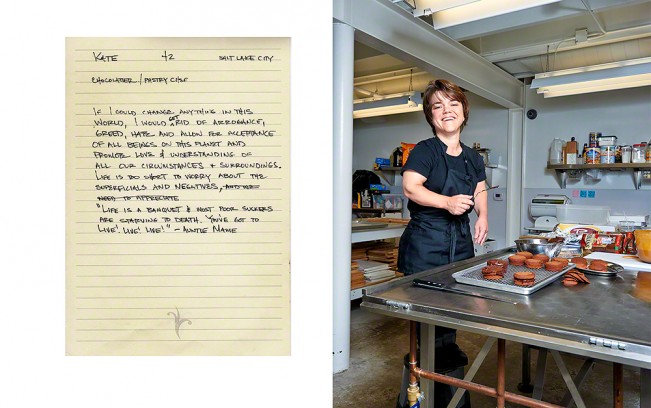 KATE 42 SALT LAKE CITY
CHOCOLATIER / PASTRY CHEF
IF I COULD CHANGE ANYTHING IN THIS
WORLD, I WOULD GET RID OF ARROGANCE,
GREED, HATE AND ALLOW FOR ACCEPTANCE
OF ALL BEINGS ON THIS PLANET AND
PROMOTE LOVE & UNDERSTANDING OF
ALL OUR CIRCUMSTANCES & SURROUNDINGS.
LIFE IS TO SHORT TO WORRY ABOUT THE
SUPERFICIALS AND NEGATIVES, AND THE
NEED TO APPRECIATE
"LIFE IS A BANQUET & MOST POOR SUCKERS
ARE STARVING TO DEATH. YOU'VE GOT TO
LIVE! LIVE! LIVE!" - AUNTIE MAME